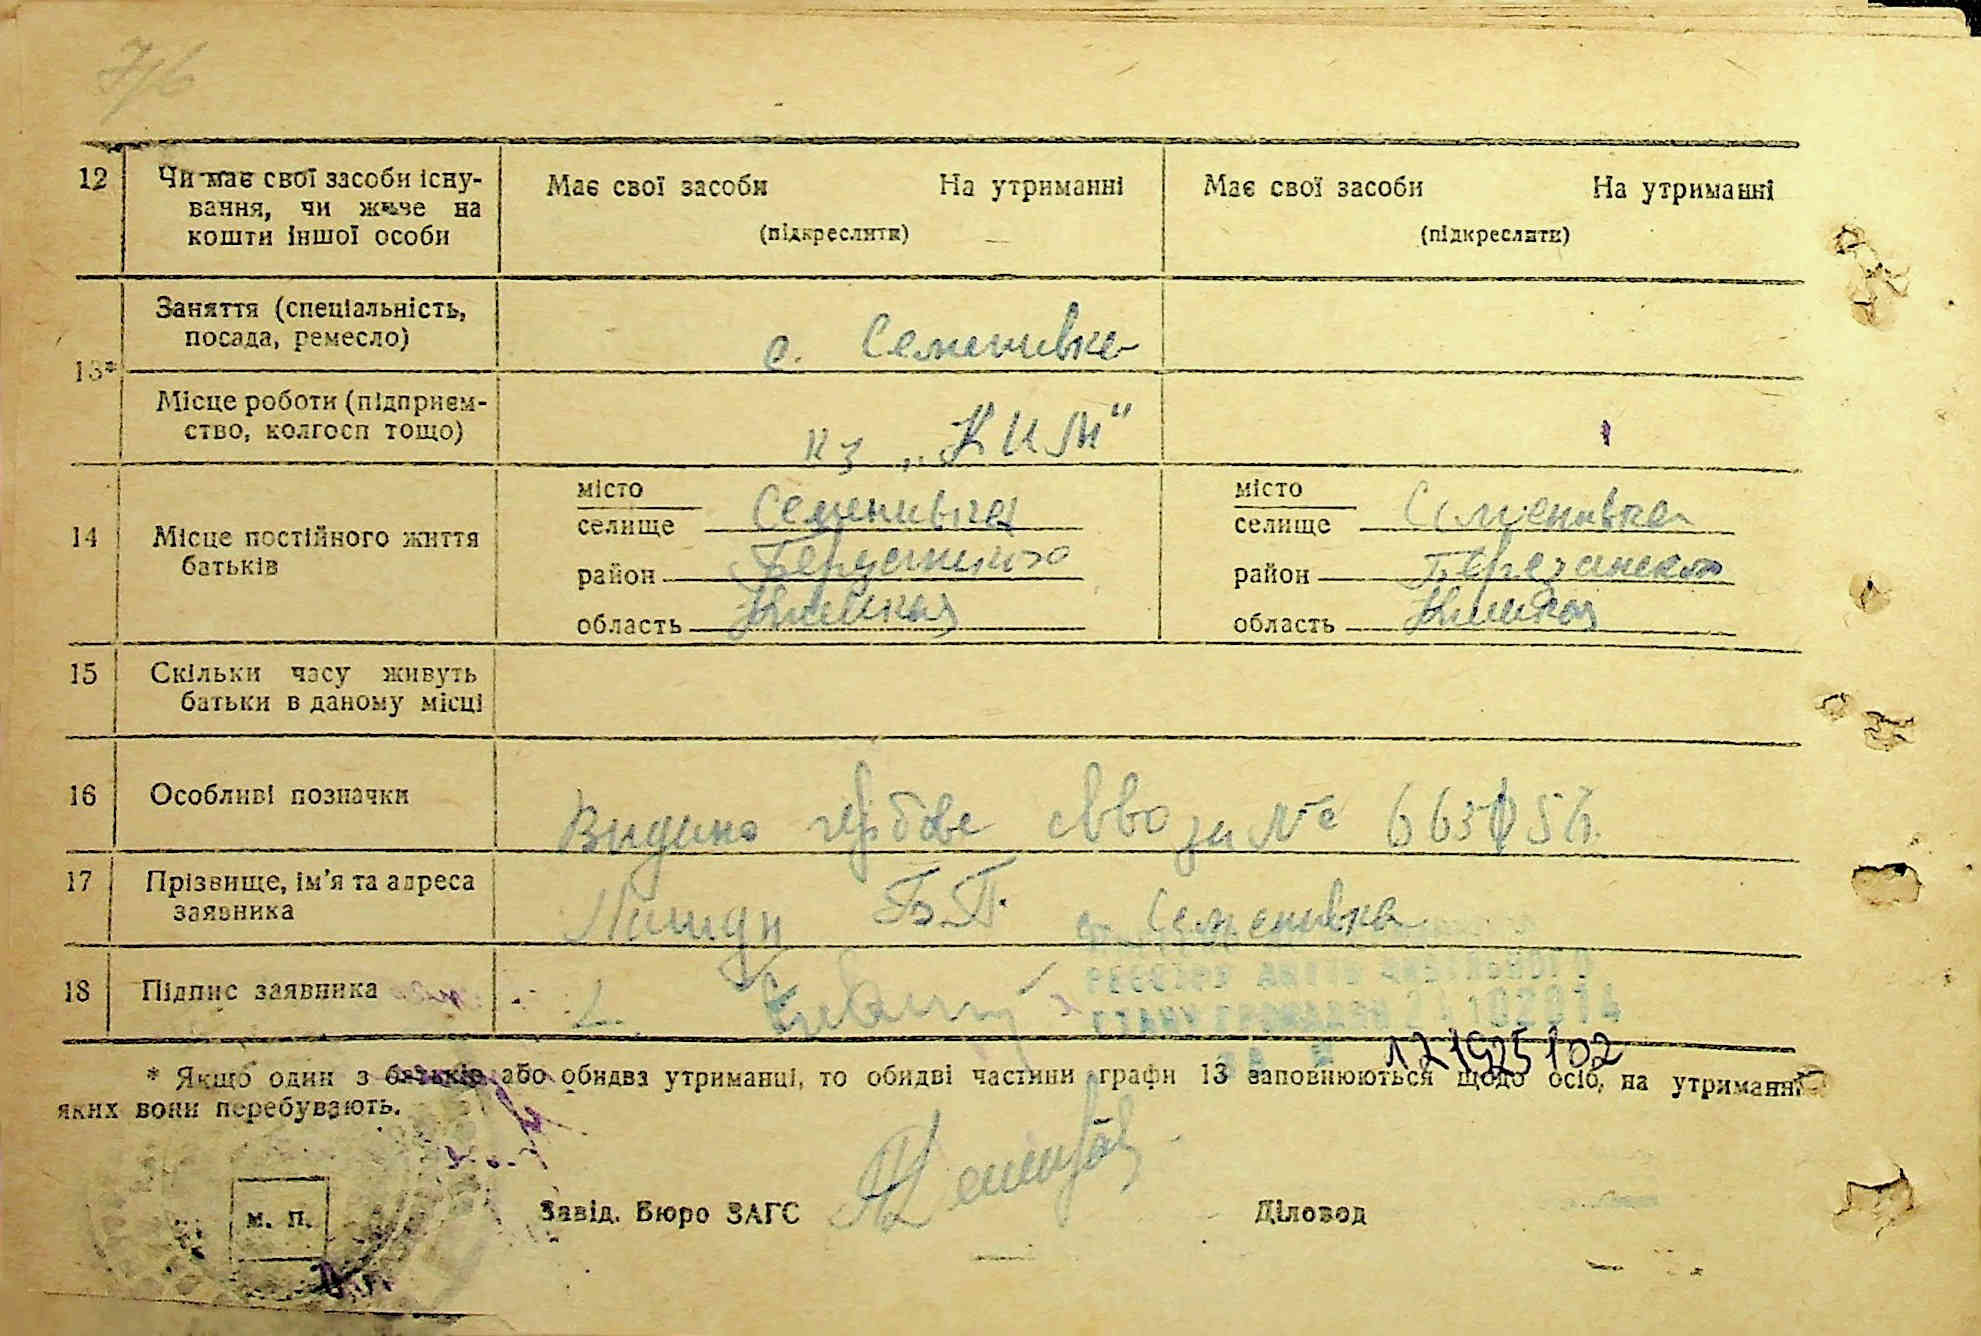 7/6
12 Чи має свої засоби існу-
вання, чи живе на
кошти іншої особи
Має свої засоби На утриманні
(підкреслити)
Має свої засоби На утриманні
(підкреслити)
13*
Заняття (спеціальність,
посада, ремесло)
с. Семенивка
Місце роботи (підприєм-
ство, колгосп тощо)
кз „КИМ"
14 Місце постійного життя
батьків
місто
селище Семенивка
район
область
місто
селище Семенивка
район Березанского
область
15 Скільки часу живуть
батьки в даному місці
16 Особливі позначки
Видано гербове св-во за №
17 Прізвище, ім'я та адреса
заявника
Б.П. с. Семенивка
18 Підпис заявника
121925102
* Якщо один з батьків або обидва утриманці, то обидві частини графи 13 заповнюються щодо осіб, на утриманні
яких вони перебувають.
м. п.
Завід. Бюро ЗАГС
Діловод